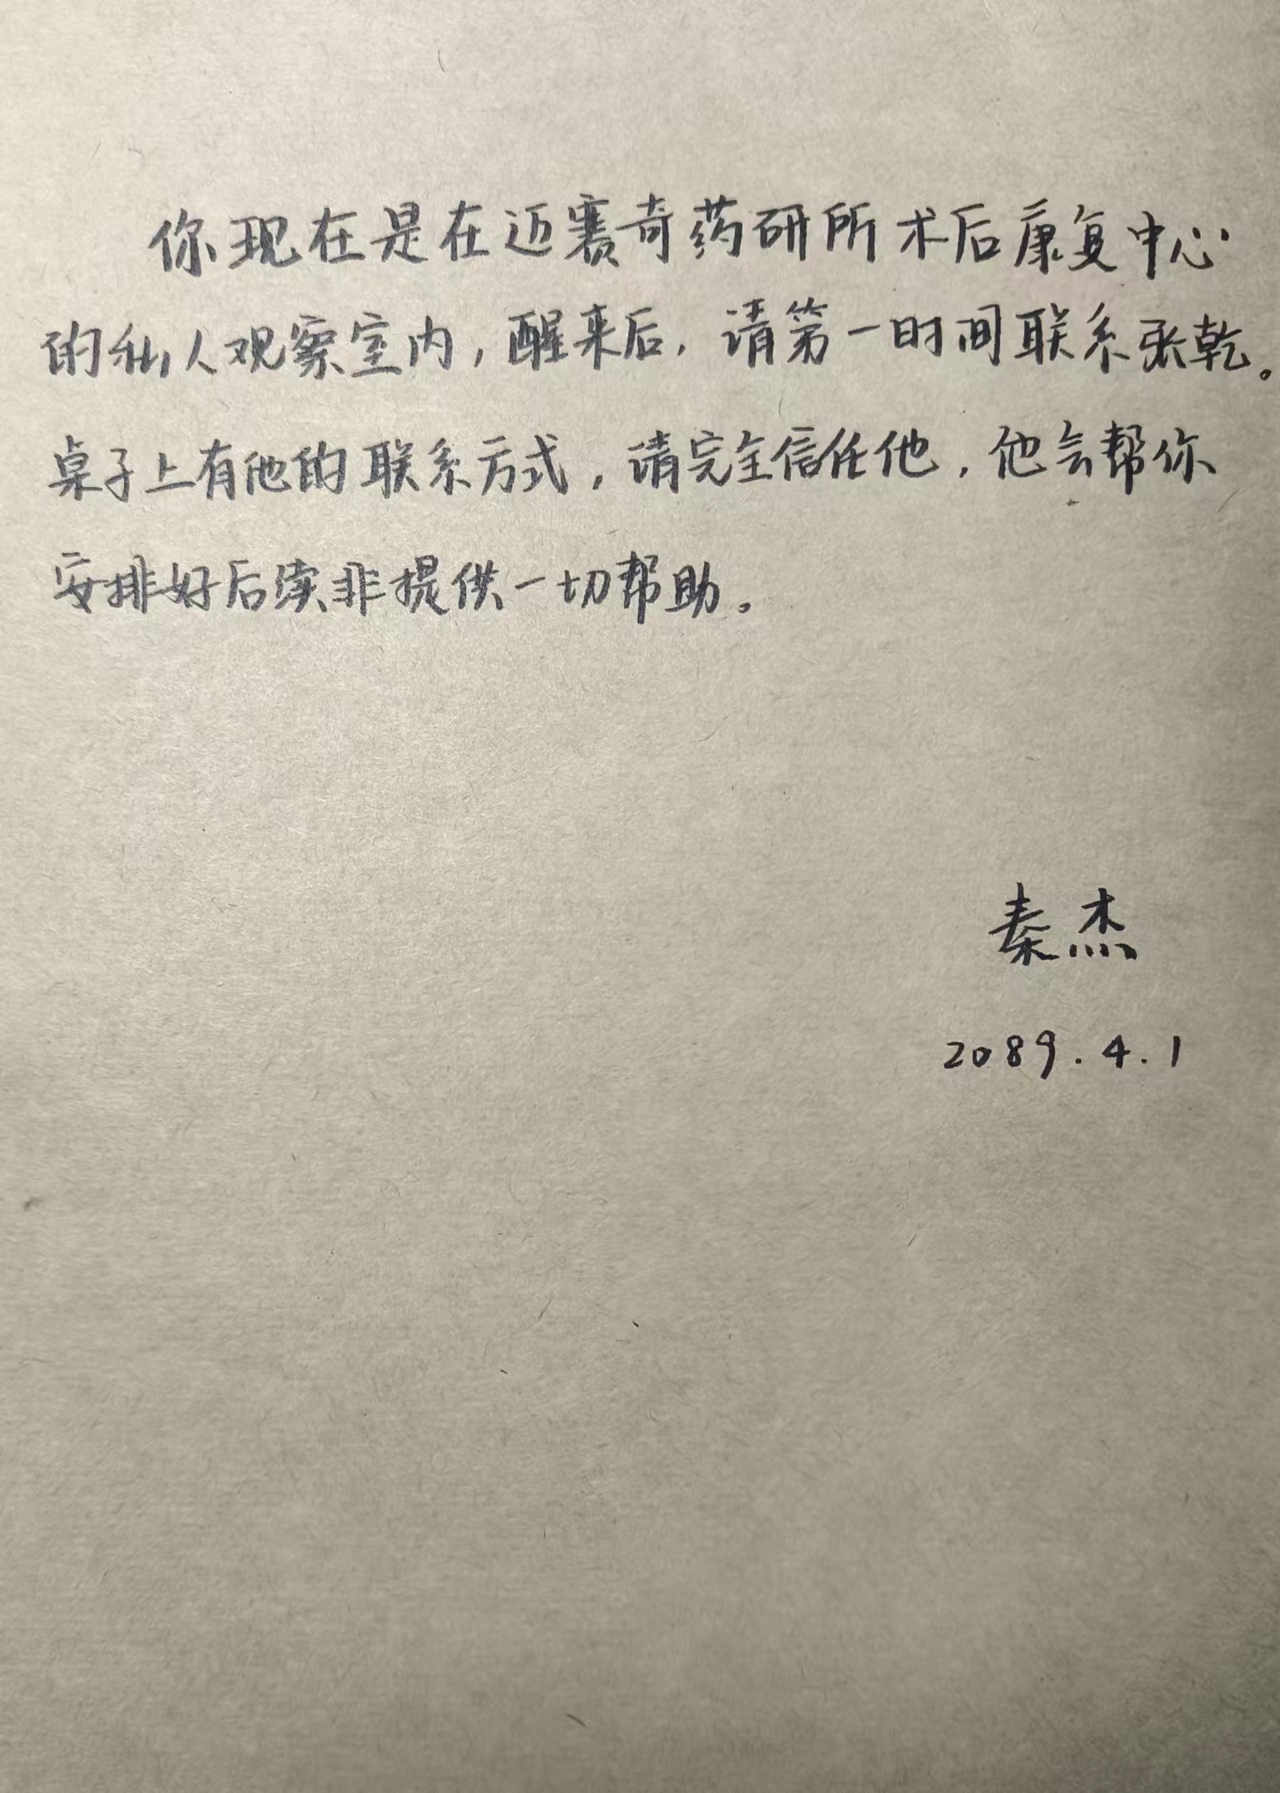 你现在是在迈赛奇药研所术后康复中心
的私人观察室内，醒来后，请第一时间联系张乾。
桌子上有他的联系方式，请完全信任他，他会帮你
安排好后续非提供一切帮助。
秦杰
2089.4.1